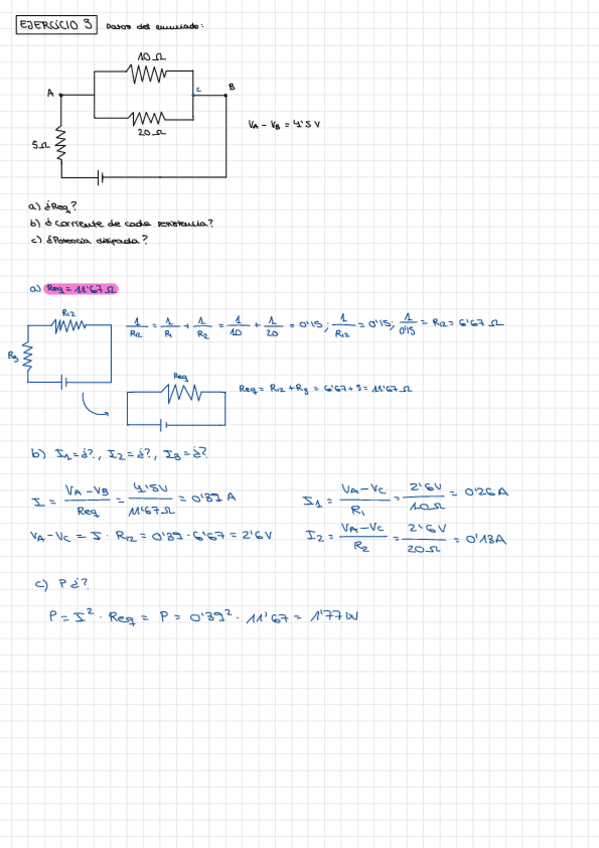 EJERCICIO 3 Datos del enunciado:
10Ω
A
C
B
20Ω
VA - VB = 4'5V
5Ω
a) ¿Req?
b) ¿corriente de cada resistencia?
c) ¿Potencia disipada?
a) Req = 11'67Ω
R12
1/R12 = 1/R1 + 1/R2 = 1/10 + 1/20 = 0'15; 1/R12 = 0'15; 1/0'15 = R12 = 6'67 Ω
R3
Req
Req = R12 + R3 = 6'67 + 5 = 11'67 Ω
b) I1 = ¿?, I2 = ¿?, I3 = ¿?
I = VA - VB / Req = 4'5V / 11'67Ω = 0'39 A
I1 = VA - VC / R1 = 2'6V / 10Ω = 0'26A
VA - VC = I · R12 = 0'39 · 6'67 = 2'6V
I2 = VA - VC / R2 = 2'6V / 20Ω = 0'13A
c) P ¿?
P = I² · Req = P = 0'39² · 11'67 = 1'77W